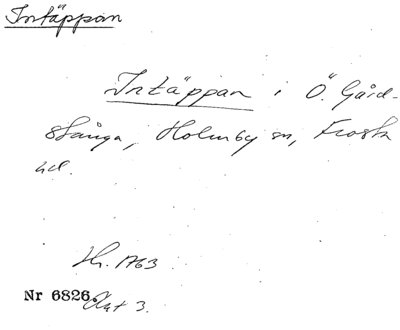 Intäppan
Intäppan i Ö. Gård-
stånga, Holmby sn, Frosta
hd.
Hr. 1763
Nr 6826. Akt 3.